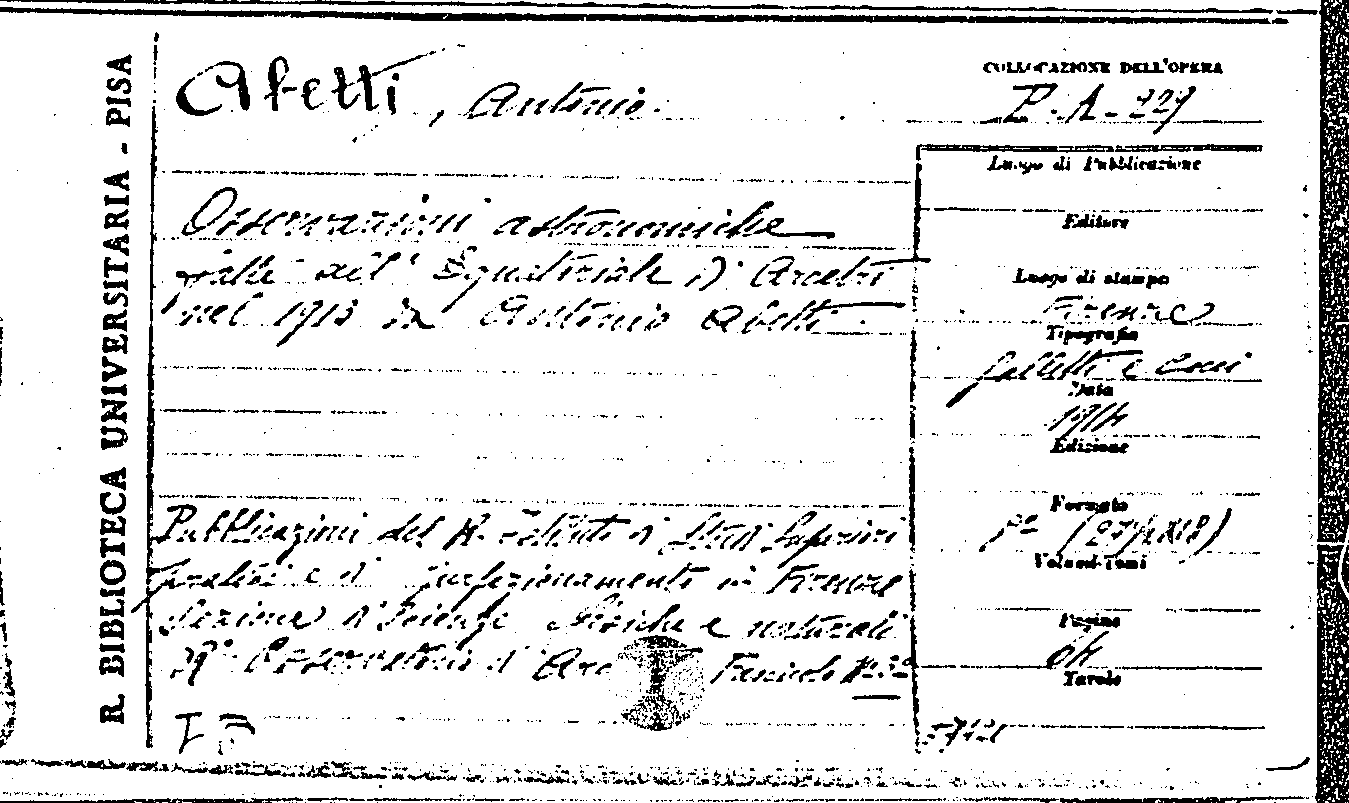 R. BIBLIOTECA UNIVERSITARIA - PISA
Abetti, Antonio.
COLLOCAZIONE DELL'OPERA
P. A. 229
Osservazioni astronomiche
fatte all' Equatoriale di Arcetri
nel 1913 da Antonio Abetti.
Pubblicazioni del R. Istituto di Studi Superiori
pratici e di perfezionamento in Firenze
Sezione di Scienze fisiche e naturali
R.° Osservatorio di Arc Fascicolo N.
Luogo di Pubblicazione
Editore
Luogo di stampa
Firenze
Tipografia
Galletti e Cocci
Data
1914
Edizione
Formato
8°
Volumi-Tomi
Pagine
64
Tavole